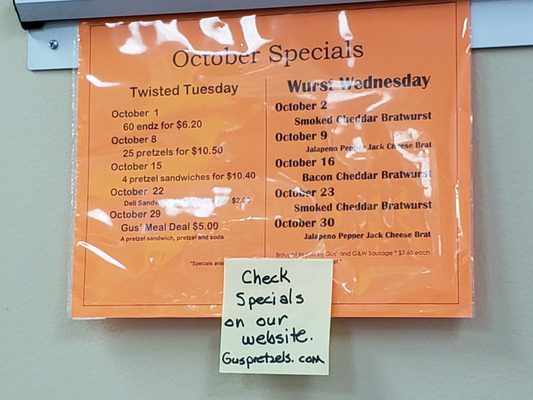 October Specials
Twisted Tuesday
October 1
60 endz for $6.20
October 8
25 pretzels for $10.50
October 15
4 pretzel sandwiches for $10.40
October 22
Deli $2.00
October 29
Gus' Meal Deal $5.00
A pretzel sandwich, pretzel and soda
Wurst Wednesday
October 2
Smoked Cheddar Bratwurst
October 9
Jalapeno Pepper Jack Cheese Brat
October 16
Bacon Cheddar Bratwurst
October 23
Smoked Cheddar Bratwurst
October 30
Jalapeno Pepper Jack Cheese Brat
Brought to you by Gus' and G&W Sausage * $3.60 each
*Specials
Check
Specials
on our
website.
Guspretzels.com